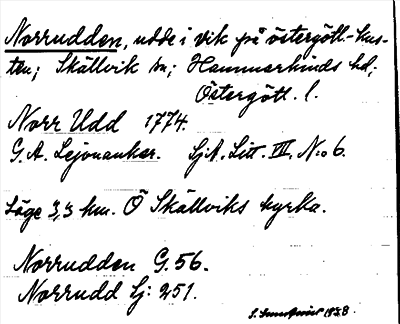 Norrudden, udde i vik på östergötl.-kus-
ten; Skällvik sn; Hammarkinds hd;
Östergötl. l.
Norr Udd 1774.
G. A. Lejonanker. SjA. Litt. VII. N:o 6.
Läge 3,3 km. Ö Skällviks kyrka.
Norrudden G. 56.
Norrudd Sj: 251.
S. 1928